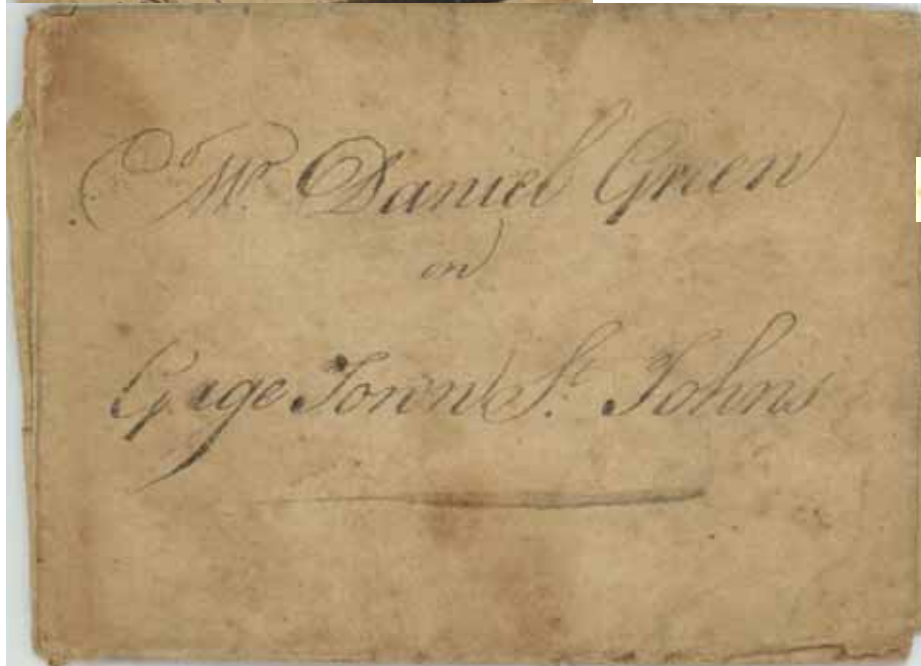 Mr. Daniel Green
on
Gage Town St. Johns